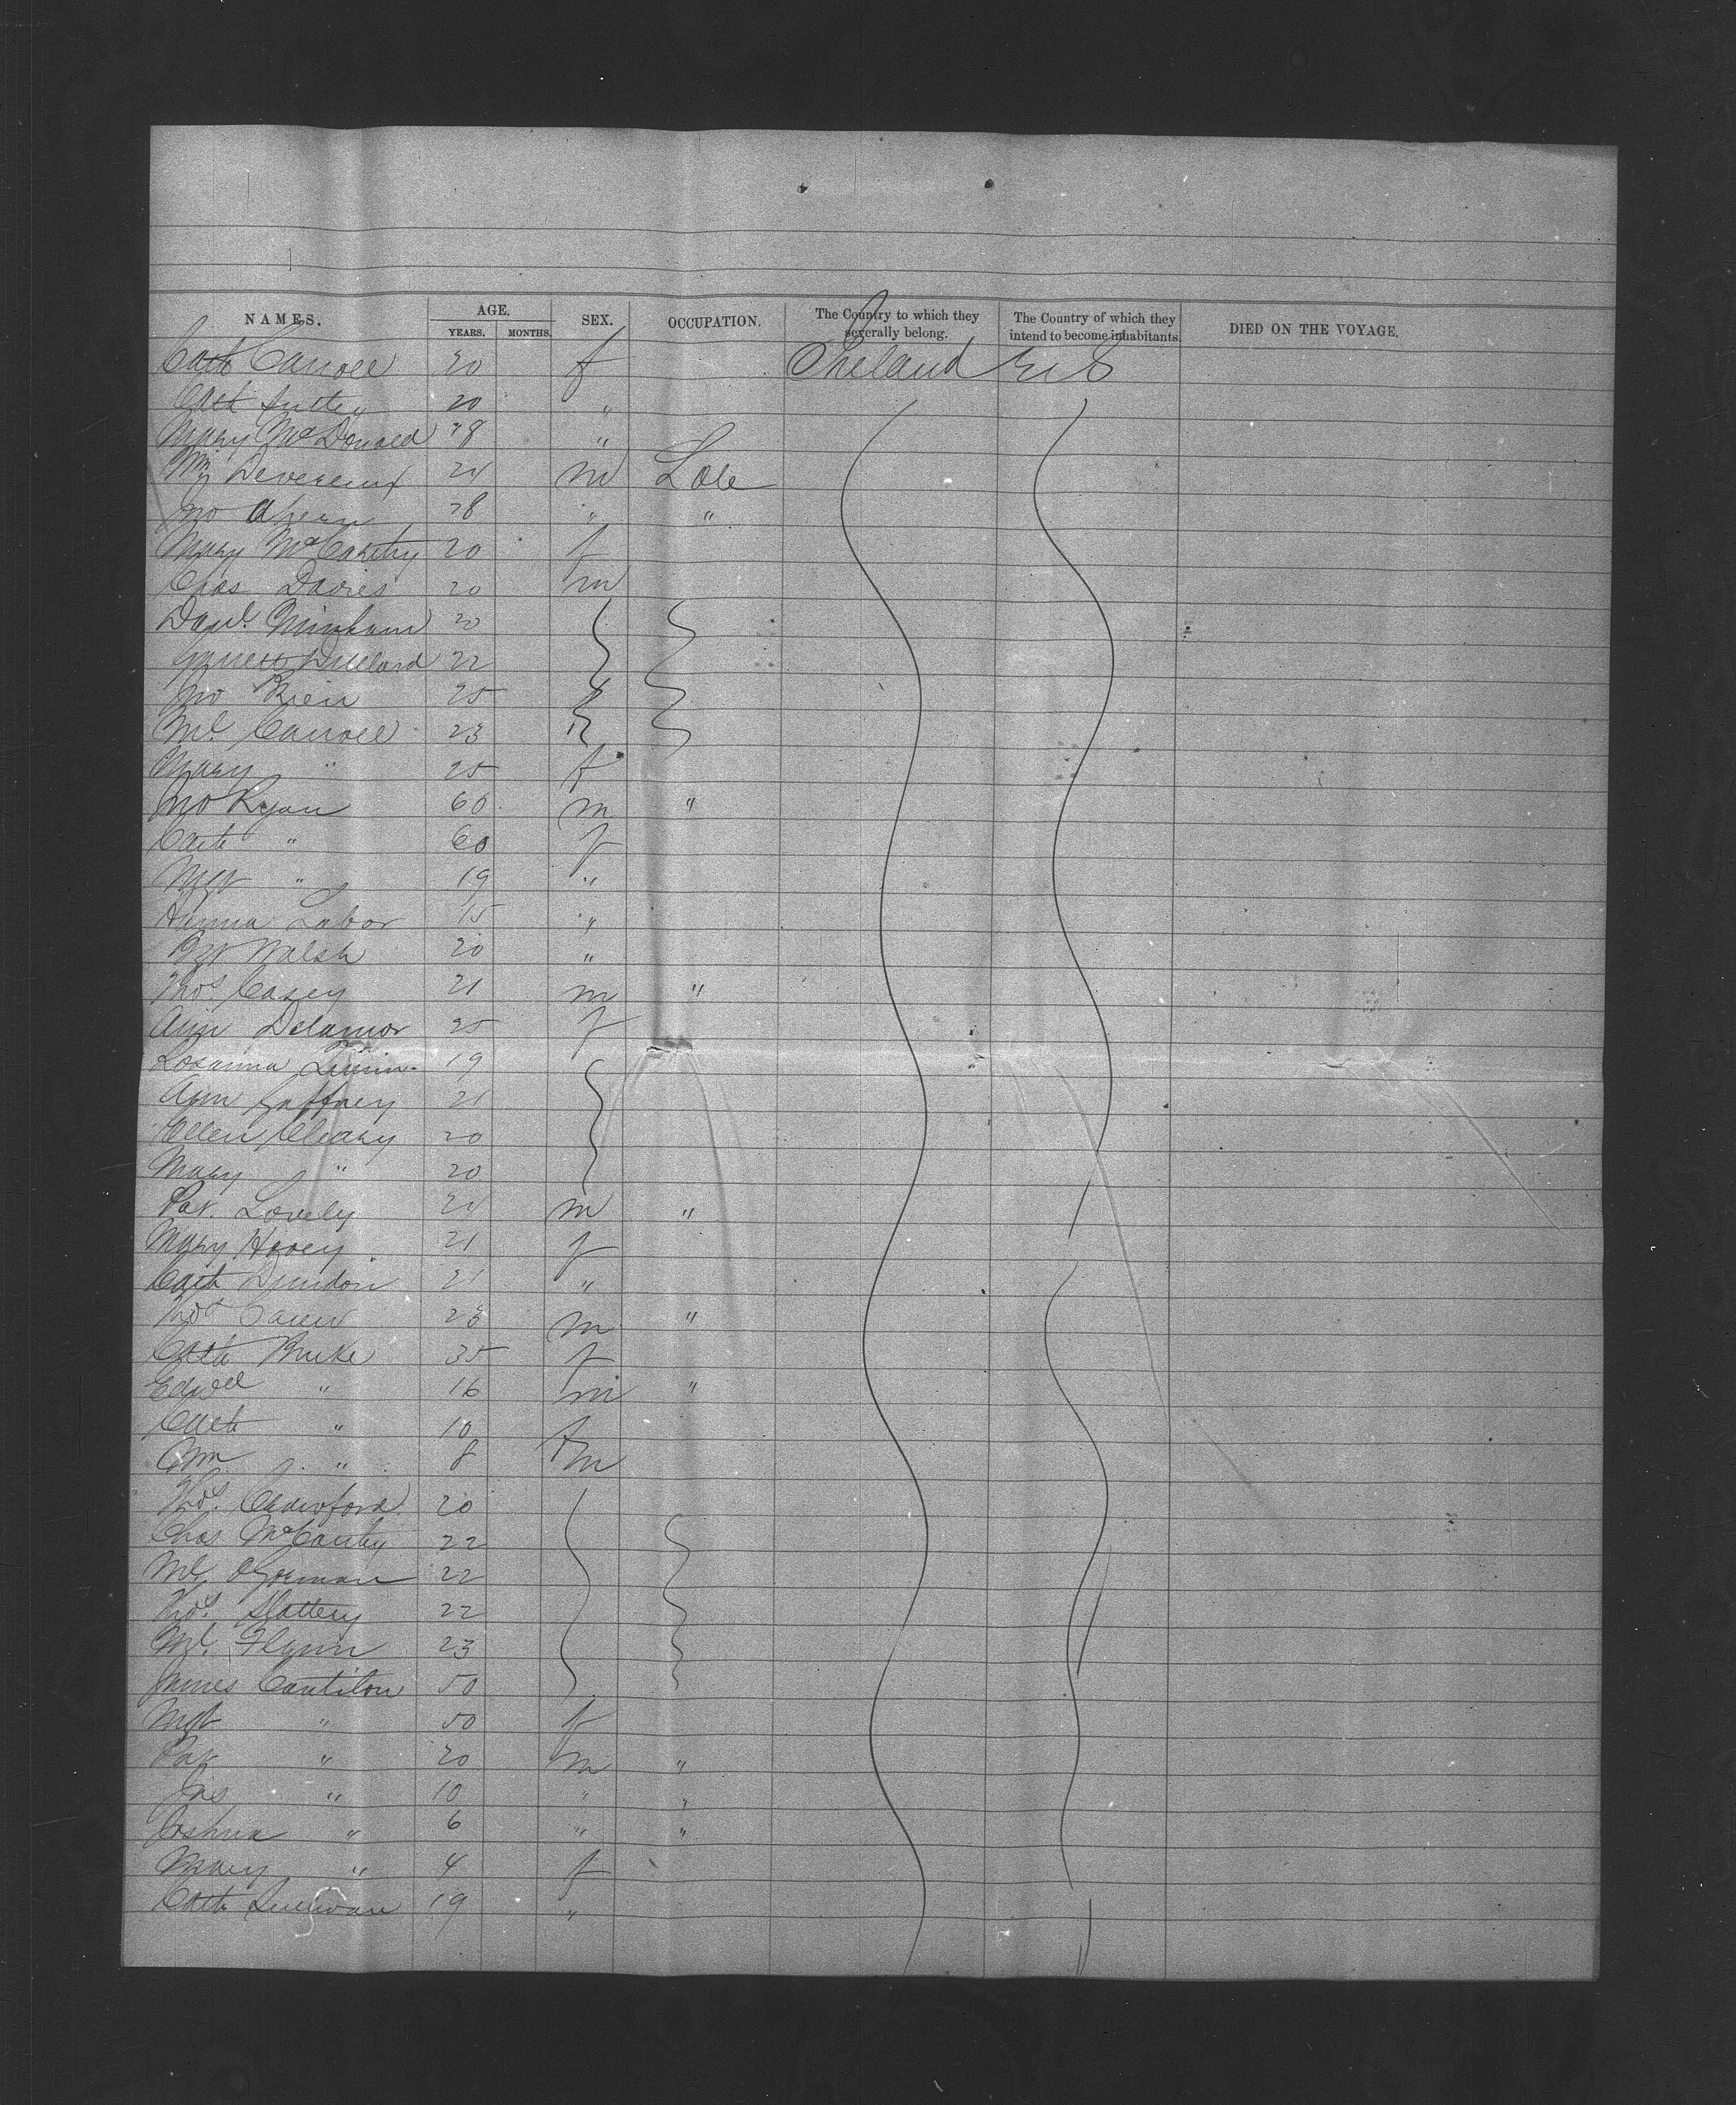 NAMES. AGE. SEX. OCCUPATION. The Country to which they severally belong. The Country of which they intend to become inhabitants. DIED ON THE VOYAGE.
YEARS. MONTHS.
Cath Carroll 20 f Ireland U S
Cath 20 "
Mary McDonald 28 "
Wm Devereux 24 m Lab
Jno Ahern 28 " "
Mary McCarthy 20 f
Chas Davies 20 m
Danl. 20
Garrett 22
Jno 25
Ml. Carroll 23
Mary " 25 f
Jno Ryan 60 m "
Cath " 60 f
Mgt " 19 "
Hanna Labor 15 "
Bgt Walsh 20 "
Thos Casey 21 m "
Ann Delamor 25 f
Rosanna 19
Ann Gaffney 21
Ellen Cleary 20
Mary " 20
Pat. Lovely 24 m "
Mary Hovey 21 f
Cath Dundon 21 "
Thos 23 m "
Cath Burke 35 f
Edwd " 16 m "
Cath " 10 f
Wm " 8 m
Thos. Crawford 20
Chas McCarthy 22
Ml. OGorman 22
Thos. Slattery 22
Ml. Flynn 23
James Cantilon 50
Mgt " 50 f
Pat " 20 m "
Jas " 10 " "
Joshua " 6 " "
Mary " 4 f
Cath Sullivan 19 "